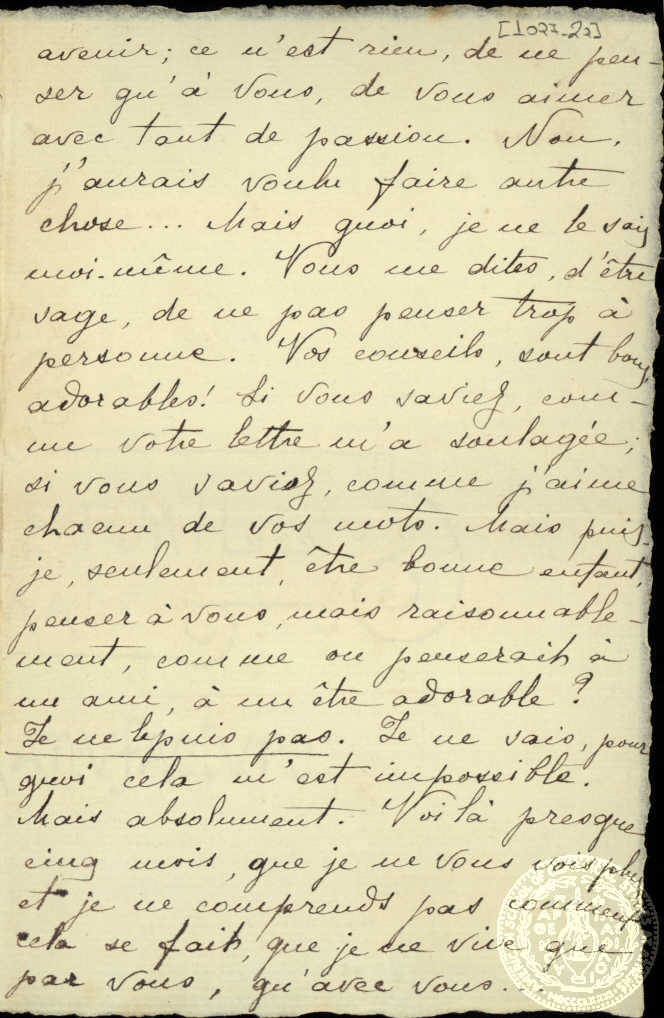 [1027-22]
avenir; ce n'est rien, de ne pen-
ser qu'à vous, de vous aimer
avec tant de passion. Non,
j'aurais voulu faire autre
chose... Mais quoi, je ne le sais
moi-même. Vous me dites, d'être
sage, de ne pas penser trop à
personne. Vos conseils, sont bons,
adorables! Si vous saviez, com-
me votre lettre m'a soulagée;
si vous saviez, comme j'aime
chacun de vos mots. Mais puis-
je, seulement, être bonne enfant,
penser à vous, mais raisonnable-
ment, comme on penserait à
un ami, à un être adorable?
Je ne le puis pas. Je ne sais, pour
quoi cela m'est impossible.
Mais absolument. Voilà presque
cinq mois, que je ne vous vois plus
et je ne comprends pas comment
cela se fait, que je ne vive que
par vous, qu'avec vous...